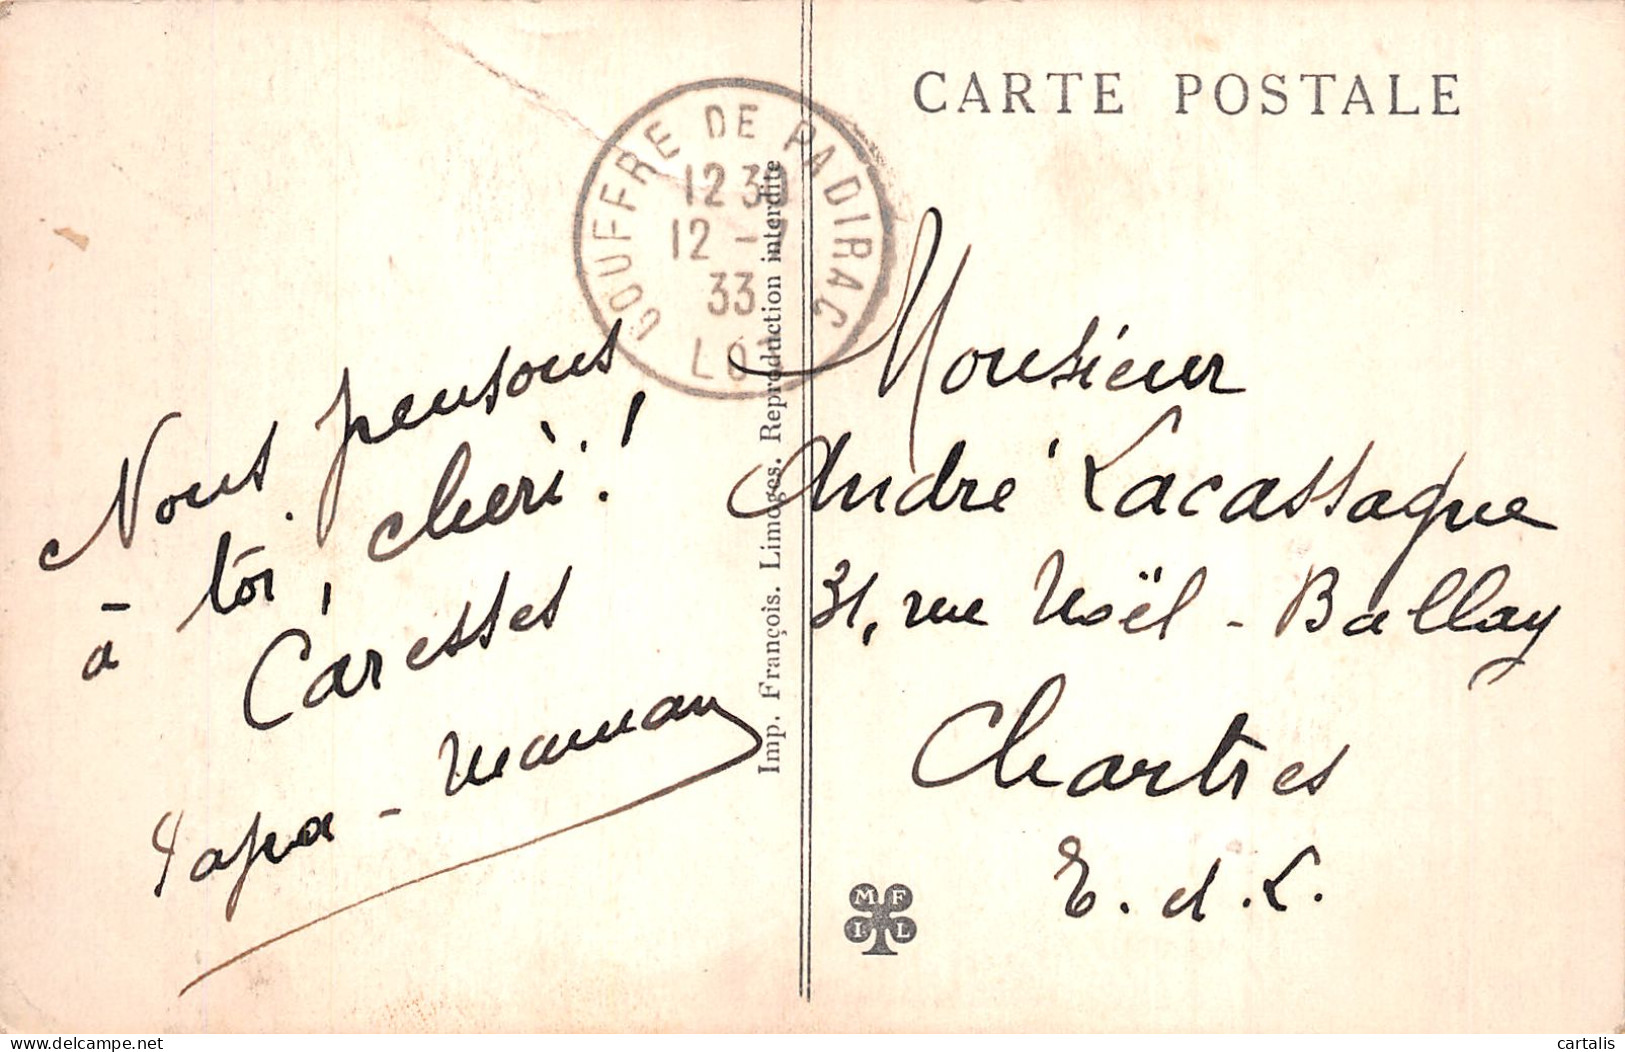 CARTE POSTALE
GOUFFRE DE PADIRAC
12 30
12 - 7
33
LOT
Nous pensons
à toi, chéri !
Caresses
Papa - Maman
Imp. François. Limoges. Reproduction interdite
Monsieur
André Lacassagne
31, rue Noël - Ballay
Chartres
E. d. L.
M F
I L
delcampe.net
cartalis